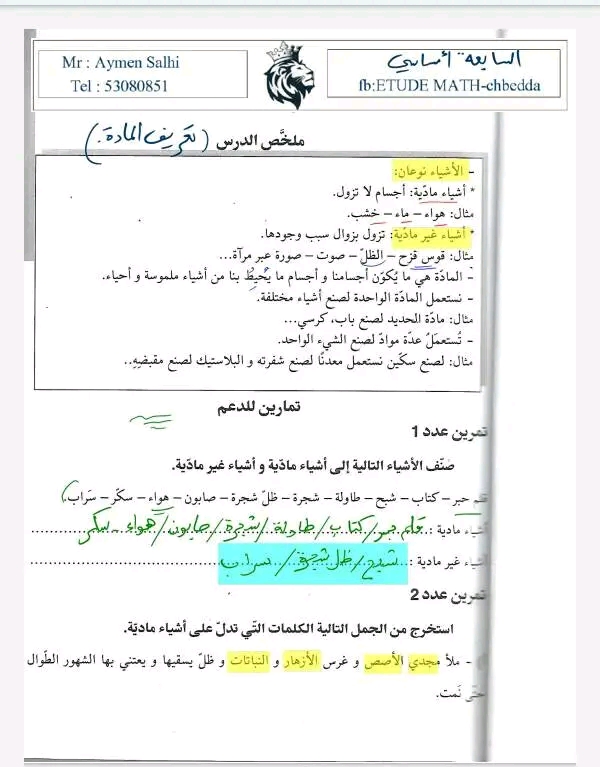 Mr : Aymen Salhi
Tel : 53080851
السابعة أساسي
fb:ETUDE MATH-chbedda
ملخَّص الدرس (تعريف المادة.)
- الأشياء نوعان:
* أشياء مادّية: أجسام لا تزول.
مثال: هواء – ماء – خشب.
* أشياء غير مادّية: تزول بزوال سبب وجودها.
مثال: قوس قزح – الظلّ – صوت – صورة عبر مرآة...
- المادّة هي ما يُكوّن أجسامنا و أجسام ما يُحيطُ بنا من أشياء ملموسة و أحياء.
- نستعمل المادّة الواحدة لصنع أشياء مختلفة.
مثال: مادّة الحديد لصنع باب، كرسي...
- تُستعمَلُ عدّة موادّ لصنع الشيء الواحد.
مثال: لصنع سكّين نستعمل معدنًا لصنع شفرته و البلاستيك لصنع مقبضهِ..
تمارين للدعم
تمرين عدد 1
صَنّف الأشياء التالية إلى أشياء مادّية و أشياء غير مادّية.
قلم حبر – كتاب – شبح – طاولة – شجرة – ظلّ شجرة – صابون – هواء – سكّر – سَراب.
أشياء مادية : قلم حبر/ كتاب/ طاولة/ شجرة/ صابون/ هواء - سكر
أشياء غير مادية : شبح/ ظل شجرة/ سراب
تمرين عدد 2
استخرج من الجمل التالية الكلمات التّي تدلّ على أشياء ماديّة.
- ملأ مجدي الأصص و غرس الأزهار و النباتات و ظلّ يسقيها و يعتني بها الشهور الطّوال
حتّى نَمت.